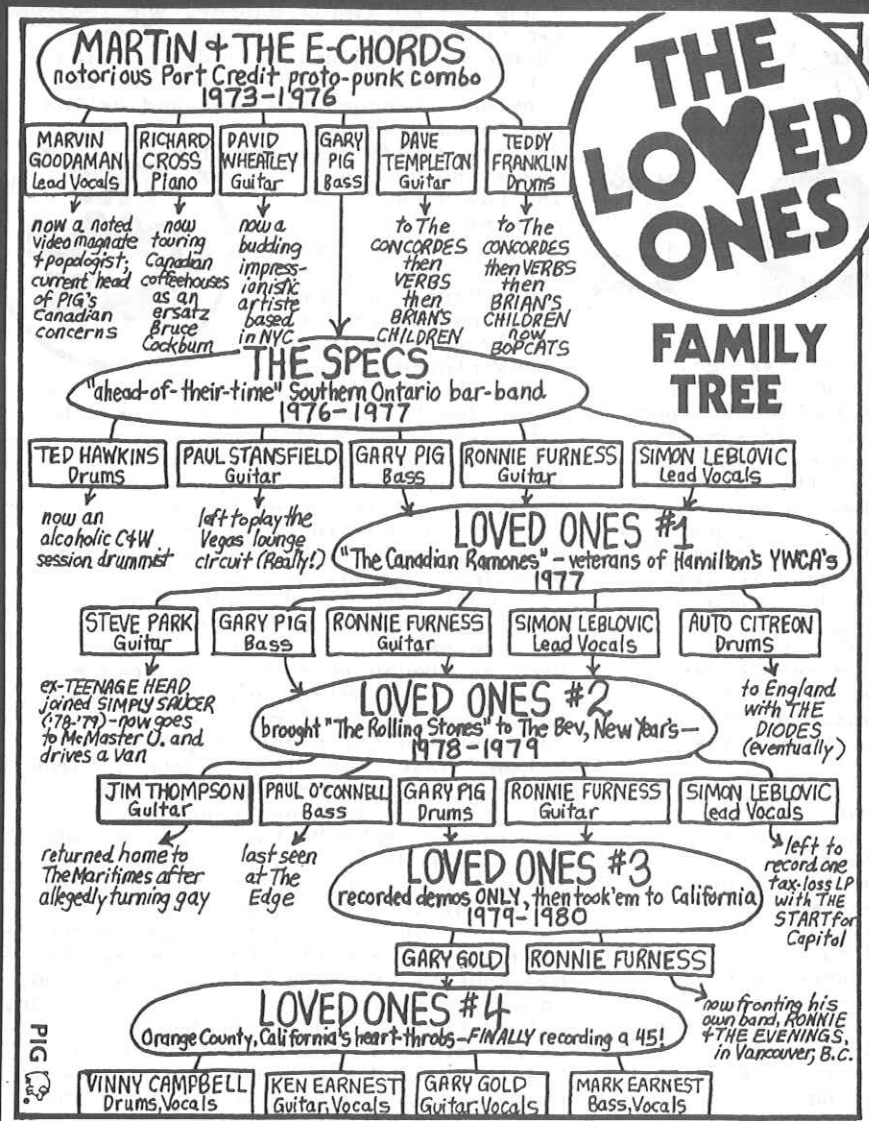 THE
LOVED
ONES
FAMILY
TREE
MARTIN & THE E-CHORDS
notorious Port Credit proto-punk combo
1973-1976
MARVIN
GOODAMAN
Lead Vocals
RICHARD
CROSS
Piano
DAVID
WHEATLEY
Guitar
GARY
PIG
Bass
DAVE
TEMPLETON
Guitar
TEDDY
FRANKLIN
Drums
now a noted
video magnate
& popologist;
current head
of PIG's
Canadian
concerns
now
touring
Canadian
coffeehouses
as an
ersatz
Bruce
Cockburn
now a
budding
impress-
ionistic
artiste
based
in NYC
to The
CONCORDES
then
VERBS
then
BRIAN'S
CHILDREN
to The
CONCORDES
then VERBS
then
BRIAN'S
CHILDREN
now
BOPCATS
THE SPECS
"ahead-of-their-time" Southern Ontario bar-band
1976-1977
TED HAWKINS
Drums
PAUL STANSFIELD
Guitar
GARY PIG
Bass
RONNIE FURNESS
Guitar
SIMON LEBLOVIC
Lead Vocals
now an
alcoholic C&W
session drummist
left to play the
Vegas lounge
circuit (Really!)
LOVED ONES #1
"The Canadian Ramones" - veterans of Hamilton's YWCA's
1977
STEVE PARK
Guitar
GARY PIG
Bass
RONNIE FURNESS
Guitar
SIMON LEBLOVIC
Lead Vocals
AUTO CITREON
Drums
ex-TEENAGE HEAD
joined SIMPLY SAUCER
('78-'79)-now goes
to McMaster U. and
drives a van
to England
with THE
DIODES
(eventually)
LOVED ONES #2
brought "The Rolling Stones" to The Bev, New Year's-
1978-1979
JIM THOMPSON
Guitar
PAUL O'CONNELL
Bass
GARY PIG
Drums
RONNIE FURNESS
Guitar
SIMON LEBLOVIC
Lead Vocals
returned home to
The Maritimes after
allegedly turning gay
last seen
at The
Edge
left to
record one
tax-loss LP
with THE
START for
Capitol
LOVED ONES #3
recorded demos ONLY, then took'em to California
1979-1980
GARY GOLD
RONNIE FURNESS
now fronting his
own band, RONNIE
& THE EVENINGS,
in Vancouver, B.C.
LOVED ONES #4
Orange County, California's heart-throbs-FINALLY recording a 45!
VINNY CAMPBELL
Drums, Vocals
KEN EARNEST
Guitar, Vocals
GARY GOLD
Guitar, Vocals
MARK EARNEST
Bass, Vocals
PIG